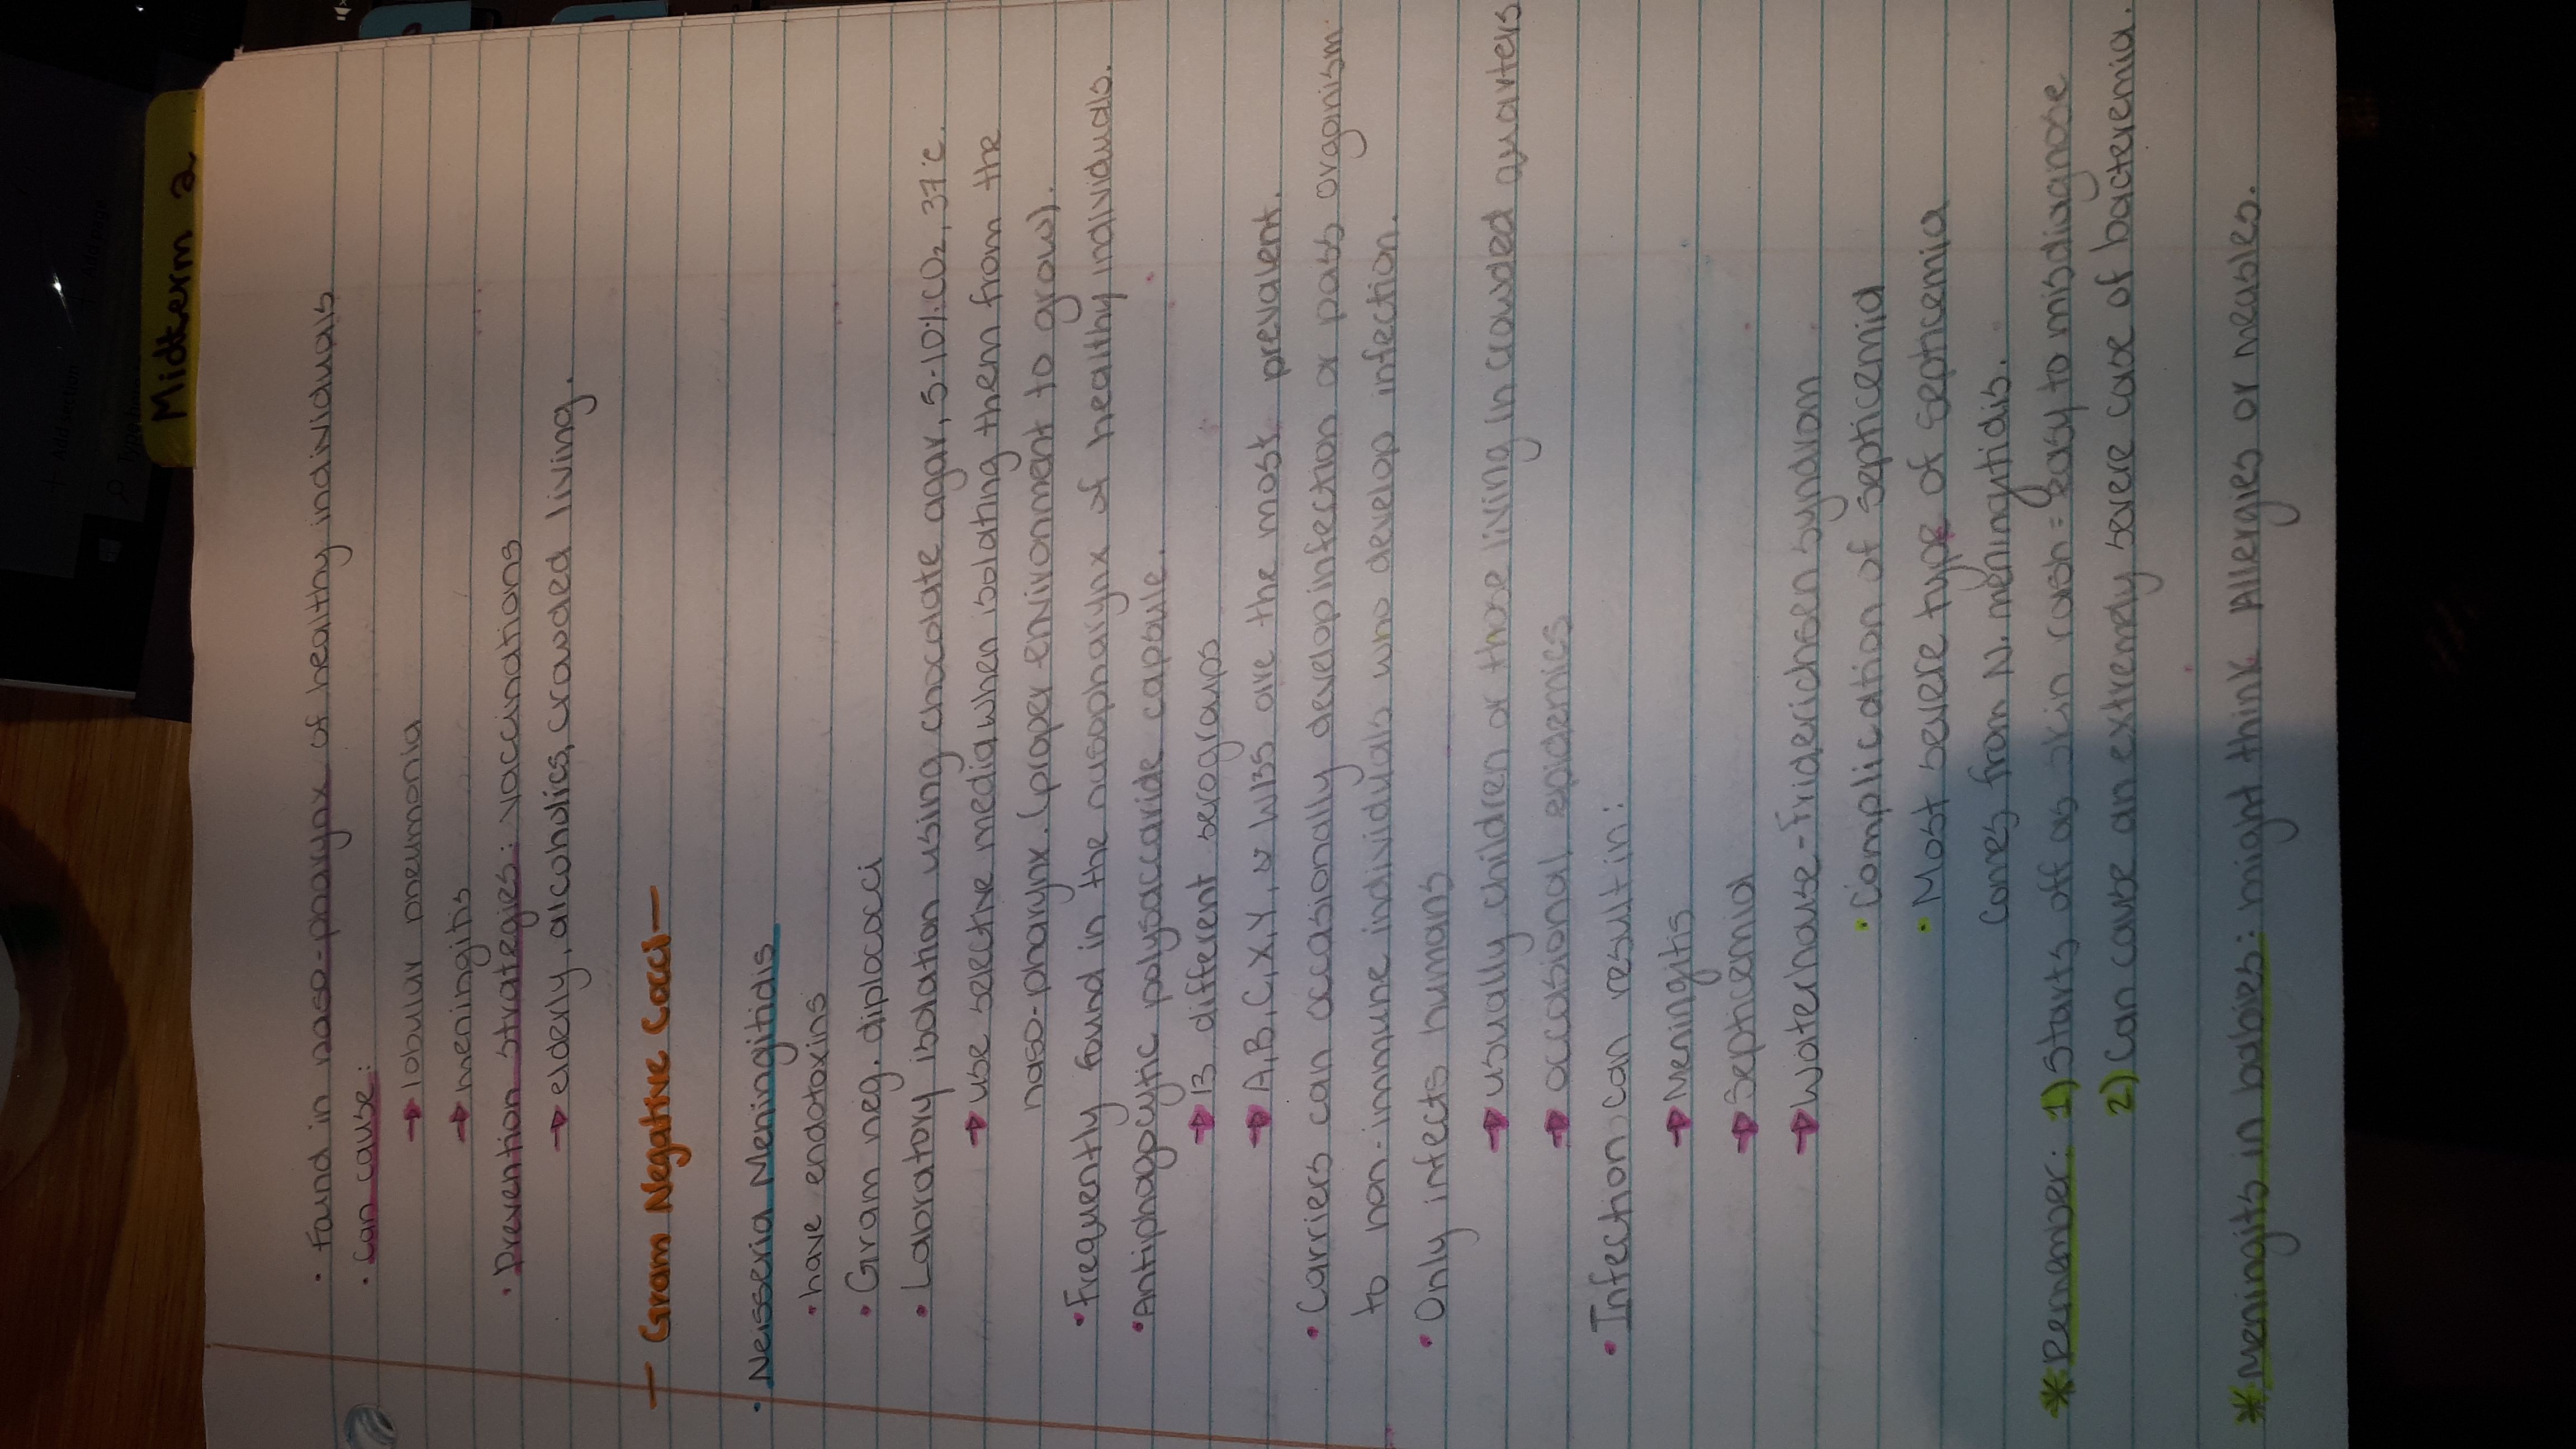 Midterm 2
• Found in naso-pharynx of healthy individuals
• Can cause:
→ lobular pneumonia
→ meningitis
• Prevention strategies: vaccinations
→ elderly, alcoholics, crowded living.
— Gram Negative Cocci —
• Neisseria Meningitidis
• have endotoxins
• Gram neg. diplococci
• Labratory isolation using chocolate agar, 5-10% CO₂, 37°C.
→ use selective media when isolating them from the
naso-pharynx. (proper environment to grow).
• Frequently found in the nasopharynx of healthy individuals.
• Antiphagocytic polysaccaride capsule.
→ 13 different serogroups
→ A, B, C, X, Y, & W135 are the most prevalent.
• Carriers can occasionally develop infection or pass organism
to non-immune individuals who develop infection.
• Only infects humans
→ usually children or those living in crowded quarters
→ occasional epidemics
• Infection can result in:
→ Meningitis
→ Septicemia
→ Waterhouse-Friderichsen syndrom
• Complication of septicemia
• Most severe type of septicemia
comes from N. meningitidis.
* Remember: 1) Starts off as skin rash = easy to misdiagnose
2) Can cause an extremely severe case of bacteremia.
* Meningits in babies: might think Allergies or measles.
+ Add section
+ Add page